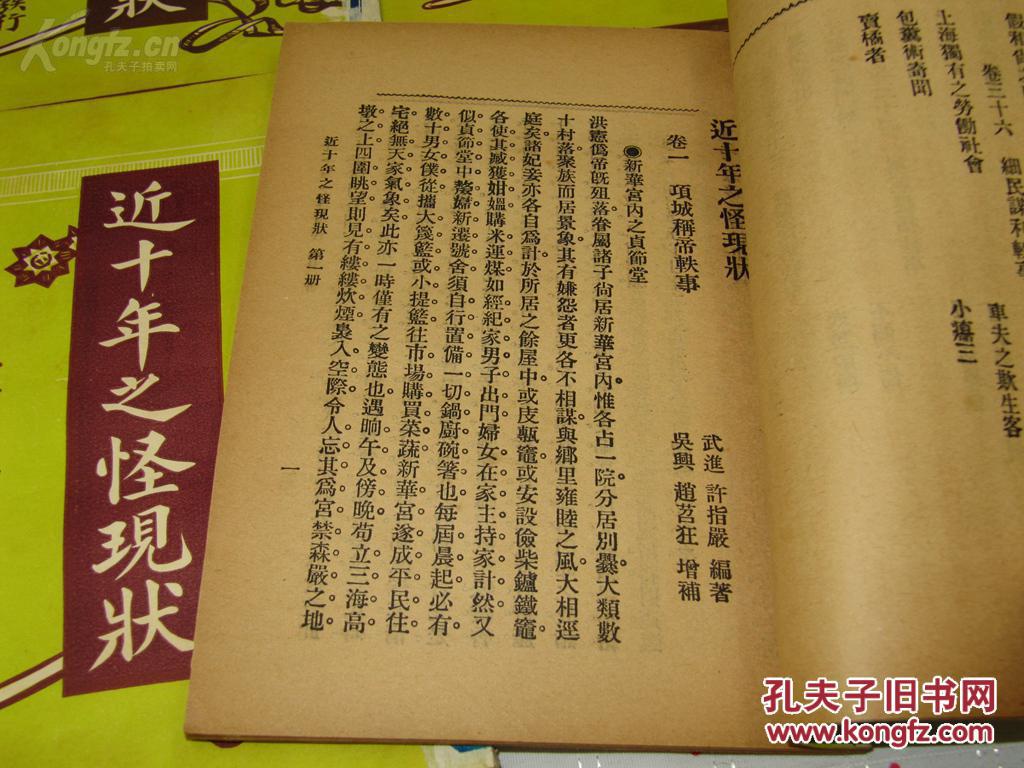 假和尚之
卷三十六 細民謀利軼事
上海獨有之勞働社會 車夫之欺生客
包裹術奇聞 小癟三
賣橘者
近十年之怪現狀
武進 許指嚴 編著
吳興 趙苕狂 增補
卷一 項城稱帝軼事
●新華宮內之貞節堂
洪憲僞帝旣殂落眷屬諸子尙居新華宮內惟各占一院分居別爨大類數
十村落聚族而居景象其有嫌怨者更各不相謀與鄉里雍睦之風大相逕
庭矣諸妃妾亦各自爲計於所居之餘屋中或庋甎竈或安設儉柴鑪鐵竈
各使其臧獲姏媼購米運煤如經紀家男子出門婦女在家主持家計然又
似貞節堂中嫠婦新遷號舍須自行置備一切鍋廚碗箸也每屆晨起必有
數十男女僕從攜大篾籃或小提籃往市場購買菜蔬新華宮遂成平民住
宅絕無天家氣象矣此亦一時僅有之變態也遇晌午及傍晚苟立三海高
墩之上四圍眺望則見有縷縷炊煙裊入空際令人忘其爲宮禁森嚴之地
近十年之怪現狀 第一册
一
近十年之怪現狀
狀
發行
Kongfz.cn
孔夫子拍卖网
孔夫子旧书网
www.kongfz.com